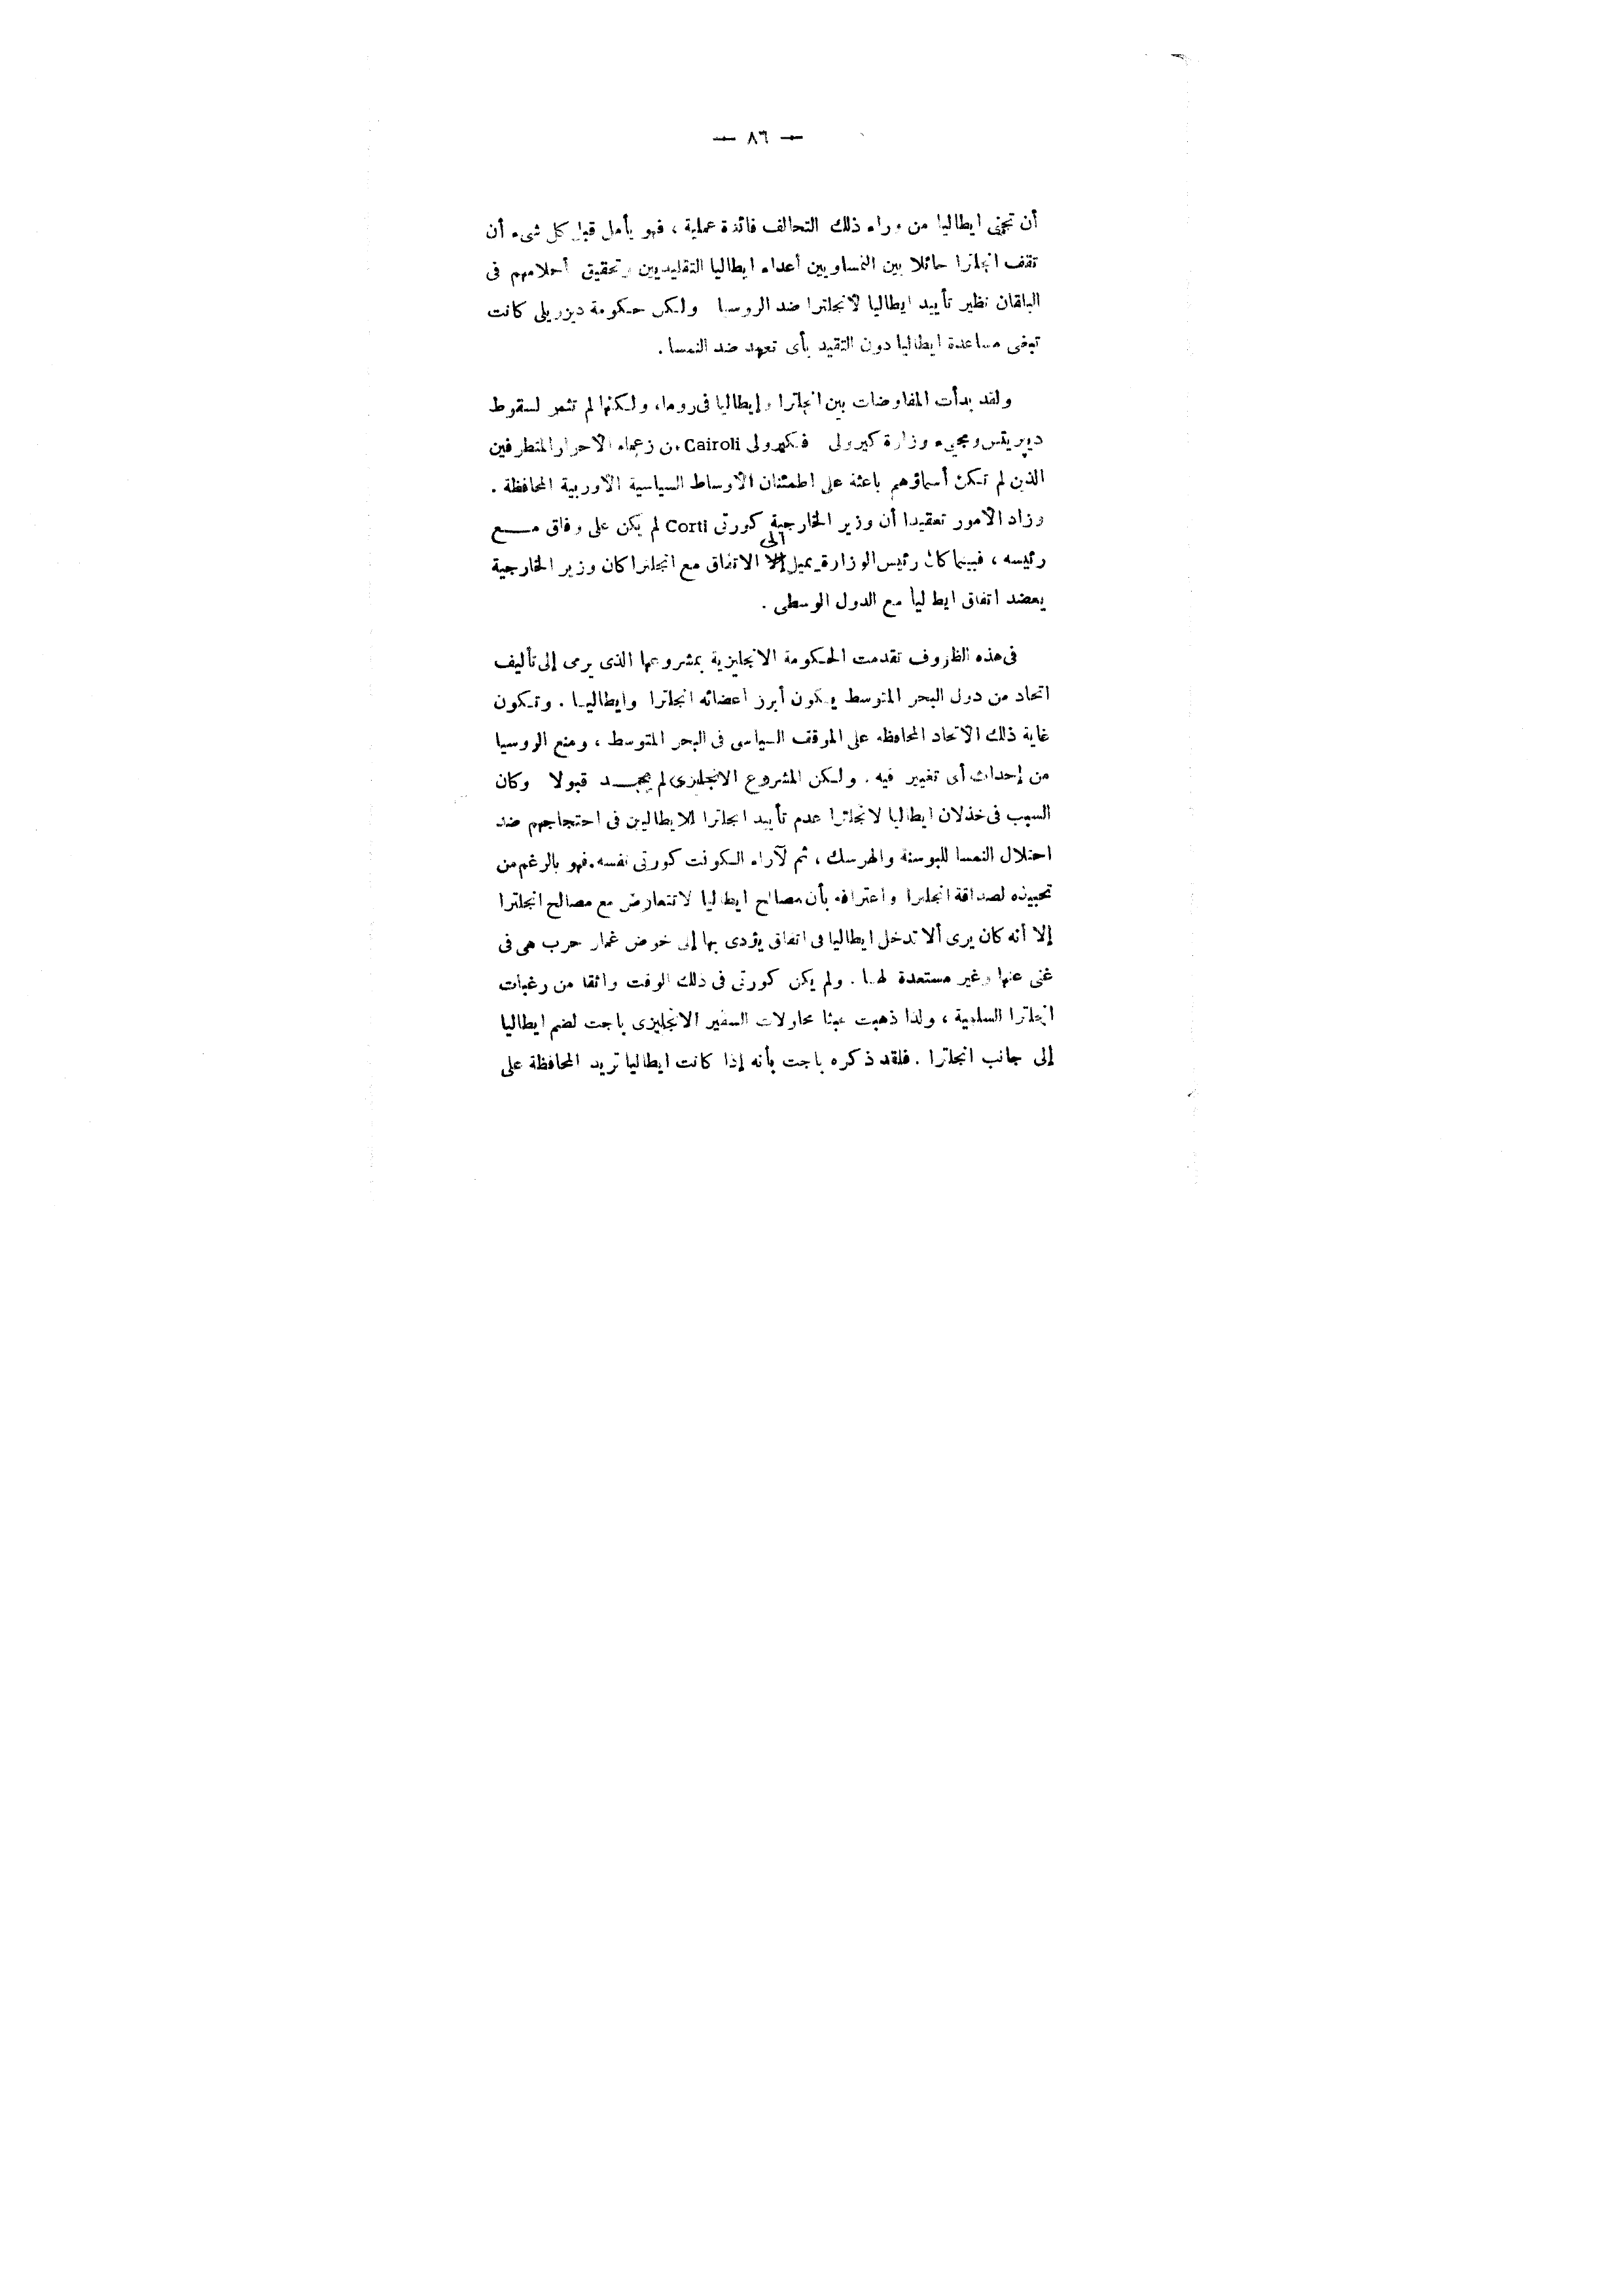 — ٨٦ —
أن تجنى ايطاليا من وراء ذلك التحالف فائدة عملية ، فهو يأمل قبل كل شىء أن
تقف انجلترا حائلا بين النمساويين أعداء ايطاليا التقليديين وتحقيق أحلامهم فى
البلقان نظير تأييد ايطاليا لانجلترا ضد الروسيا ولكن حكومة ديزريلى كانت
تبغى مساعدة ايطاليا دون التقيد بأى تعهد ضد النمسا .
ولقد بدأت المفاوضات بين انجلترا وإيطاليا فى روما، ولكنها لم تثمر لسقوط
ديبريتس ومجىء وزارة كيرولى فكيرولى Cairoli من زعماء الاحرار المتطرفين
الذين لم تكن أسماؤهم باعثة على اطمئنان الأوساط السياسية الأوربية المحافظة .
وزاد الأمور تعقيدا أن وزير الخارجية كورتى Corti لم يكن على وفاق مـــع
رئيسه ، فبينما كان رئيس الوزارة يميل إلى الاتفاق مع انجلترا كان وزير الخارجية
يعضد اتفاق ايطاليا مع الدول الوسطى .
فى هذه الظروف تقدمت الحكومة الانجليزية بمشروعها الذى يرمى إلى تأليف
اتحاد من دول البحر المتوسط يكون أبرز أعضائه انجلترا وايطاليـا . وتكون
غاية ذلك الاتحاد المحافظه على الموقف السياسى فى البحر المتوسط ، ومنع الروسيا
من إحداث أى تغيير فيه . ولكن المشروع الانجليزى لم يجـــد قبولا وكان
السبب فى خذلان ايطاليا لانجلترا عدم تأييد انجلترا للايطاليين فى احتجاجهم ضد
احتلال النمسا للبوسنة والهرسك ، ثم لآراء الكونت كورتى نفسه . فهو بالرغم من
تحبيذه لصداقة انجلترا واعترافه بأن مصالح ايطاليا لا تتعارض مع مصالح انجلترا
إلا أنه كان يرى ألا تدخل ايطاليا فى اتفاق يؤدى بها إلى خوض غمار حرب هى فى
غنى عنها وغير مستعدة لهـا . ولم يكن كورتى فى ذلك الوقت واثقا من رغبات
انجلترا السلمية ، ولذا ذهبت عبثا محاولات السفير الانجليزى باجت لضم ايطاليا
إلى جانب انجلترا . فلقد ذكره باجت بأنه إذا كانت ايطاليا تريد المحافظة على